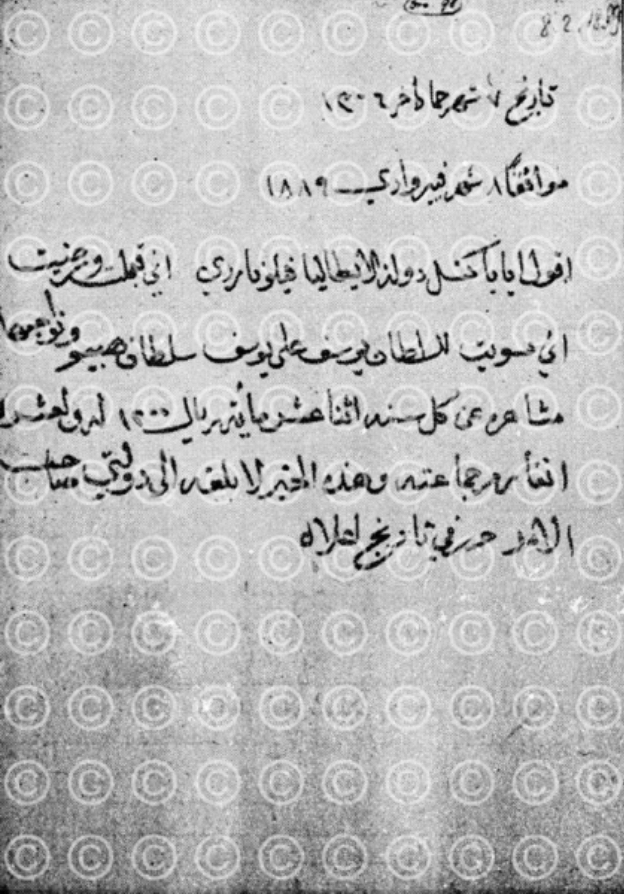 8. 2. 1889
تاريخ ٧ شهر جماد اخر ١٣٠٦
موافقا ٨ شهر فبرواري ١٨٨٩
اقول انا يا كنسل دولة الايطاليا فيلوناردي اني قبلت ورضيت
اني سويت للسلطان يوسف علي يوسف سلطان هبيو ونواحيها
مشاهره عن كل سنه اثنا عشر مأية ريال ١٢٠٠ له ولعشر
وهذه الخبر لا بلغه الى دولتي صاحب
الامر حرر في تاريخ اعلاه